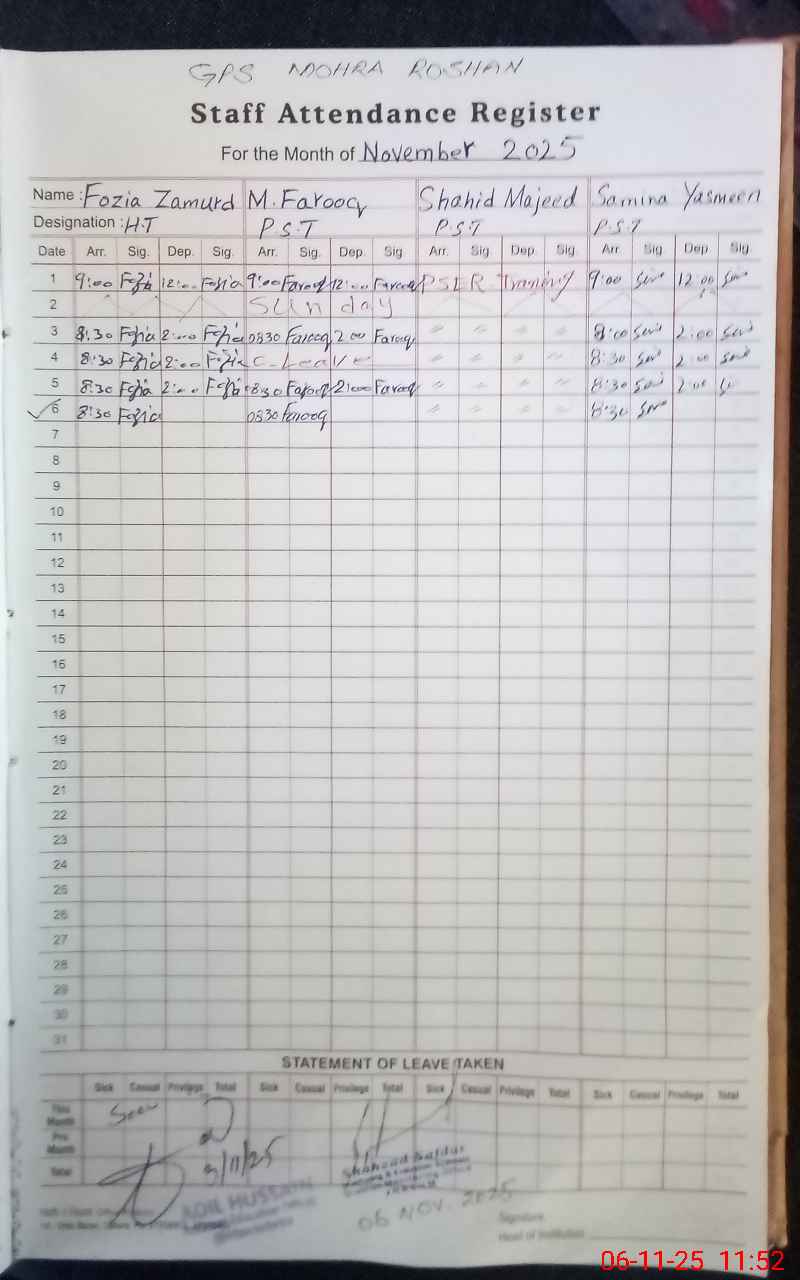 GPS MOHRA ROSHAN
Staff Attendance Register
For the Month of November 2025
Name : Fozia Zamurd M. Farooq Shahid Majeed Samina Yasmeen
Designation : H.T P.S.T P.S.T P.S.T
Date Arr. Sig. Dep. Sig. Arr. Sig. Dep. Sig Arr. Sig. Dep. Sig. Arr. Sig. Dep. Sig.
1 9:00 Fozia 12:00 Fozia 9:00 Farooq 12:00 Farooq PSER Training 9:00 12:00
2 Sunday
3 8:30 Fozia 2:00 Fozia 0830 Farooq 2:00 Farooq " " " " 8:00 2:00
4 8:30 Fozia 2:00 Fozia C-Leave " " " " 8:30 2:00
5 8:30 Fozia 2:00 Fozia 8:30 Farooq 2:00 Farooq " " " " 8:30 2:00
6 8:30 Fozia 0830 Farooq " " " " 8:30
7
8
9
10
11
12
13
14
15
16
17
18
19
20
21
22
23
24
25
26
27
28
29
30
31
STATEMENT OF LEAVE TAKEN
Sick Casual Privilege Total Sick Casual Privilege Total Sick Casual Privilege Total Sick Casual Privilege Total
This Month Seen
Pre. Month
Total 3/11/25
ADIL HUSSAIN
06 NOV. 2025
Signature
Head of Institution
06-11-25 11:52